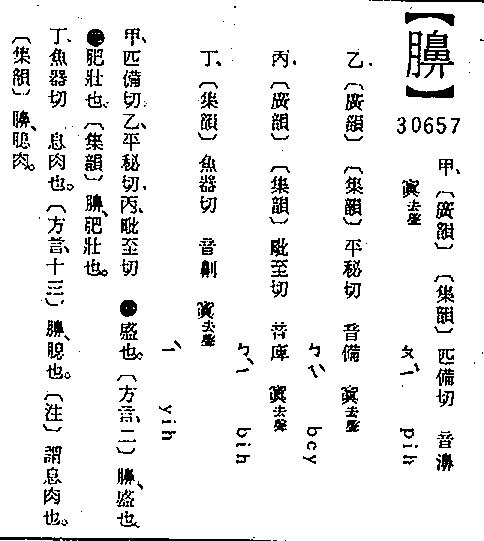 【膞】
30657
甲、〔廣韻〕〔集韻〕匹備切 音濞
寘去聲 ㄆㄧˋ pih
乙、〔廣韻〕〔集韻〕平秘切 音備 寘去聲
ㄅㄧˋ bcy
丙、〔廣韻〕〔集韻〕毗至切 音庳 寘去聲
ㄅㄧˋ bih
丁、〔集韻〕魚器切 音劓 寘去聲
ㄧˋ yih
甲、匹備切乙、平秘切、丙、毗至切 ●盛也。〔方言、二〕膞、盛也、
●肥壯也。〔集韻〕膞、肥壯也。
丁、魚器切 息肉也。〔方言、十三〕膞、䐅也。〔注〕謂息肉也。
〔集韻〕膞、䐅肉。